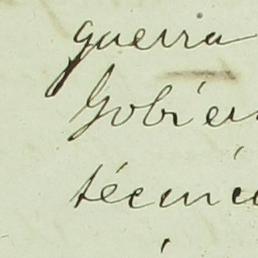 guerra
Gobier
técnic